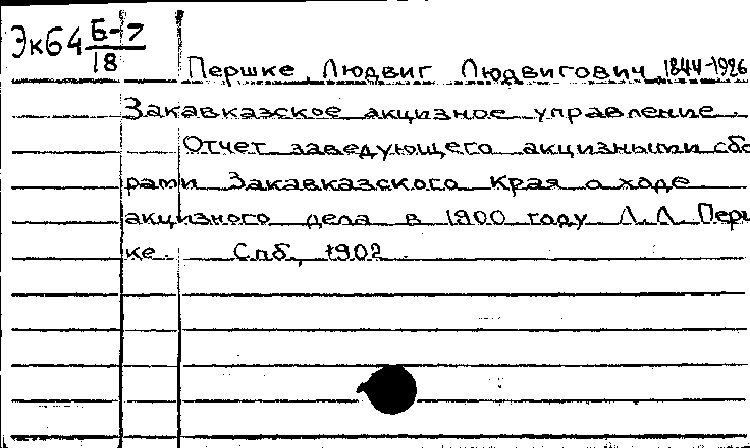 Эк64 Б-7
18
Першке, Людвиг Людвигович, 1844-1926
Закавказское акцизное управление.
Отчет заведующего акцизными сбо
рами Закавказского Края о ходе
акцизного дела в 1900 году Л.Л. Перш
ке. Спб., 1902.